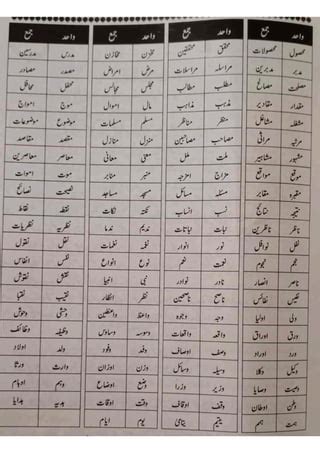 واحد جمع واحد جمع واحد جمع واحد جمع
محصول محصولات محقق محققین مخزن مخازن مدرس مدرسین
مدبر مدبرین مراسلہ مراسلات مرض امراض مصدر مصادر
مصلحت مصالح مطلب مطالب مجلس مجالس محفل محافل
مقدار مقادیر مذہب مذاہب مال اموال موج امواج
مشغلہ مشاغل منظر مناظر مسلمہ مسلمات موضوع موضوعات
مرثیہ مراثی مصاحب مصاحبین منزل منازل مقصد مقاصد
مشہور مشاہیر ملت ملل معنی معانی معاصر معاصرین
موقع مواقع مزاج امزجہ منبر منابر موت اموات
مقبرہ مقابر مسئلہ مسائل مسجد مساجد نصیحت نصائح
نتیجہ نتائج نسب انساب نکتہ نکات نقطہ نقاط
ناظر ناظرین نبات نباتات ندیم ندما نظریہ نظریات
نفل نوافل نور انوار نغمہ نغمات نقل نقول
نجم نجوم نعمت نعم نوع انواع نفس انفاس
ناصر انصار نادر نوادر نبی انبیا نقش نقوش
نفیس نفائس ناصح ناصحین نظر انظار نقیب نقبا
ولی اولیا وجہ وجوہ واعظ واعظین وحشی وحوش
ورق اوراق واقعہ واقعات وسوسہ وساوس وظیفہ وظائف
ورد اوراد وصف اوصاف وفد وفود ولد اولاد
وکیل وکلا وسیلہ وسائل وزن اوزان وارث ورثا
وصیت وصایا وزیر وزرا وضع اوضاع وہم اوہام
وطن اوطان وقف اوقاف وقت اوقات ہدیہ ہدایا
یتیم یتامی یوم ایام